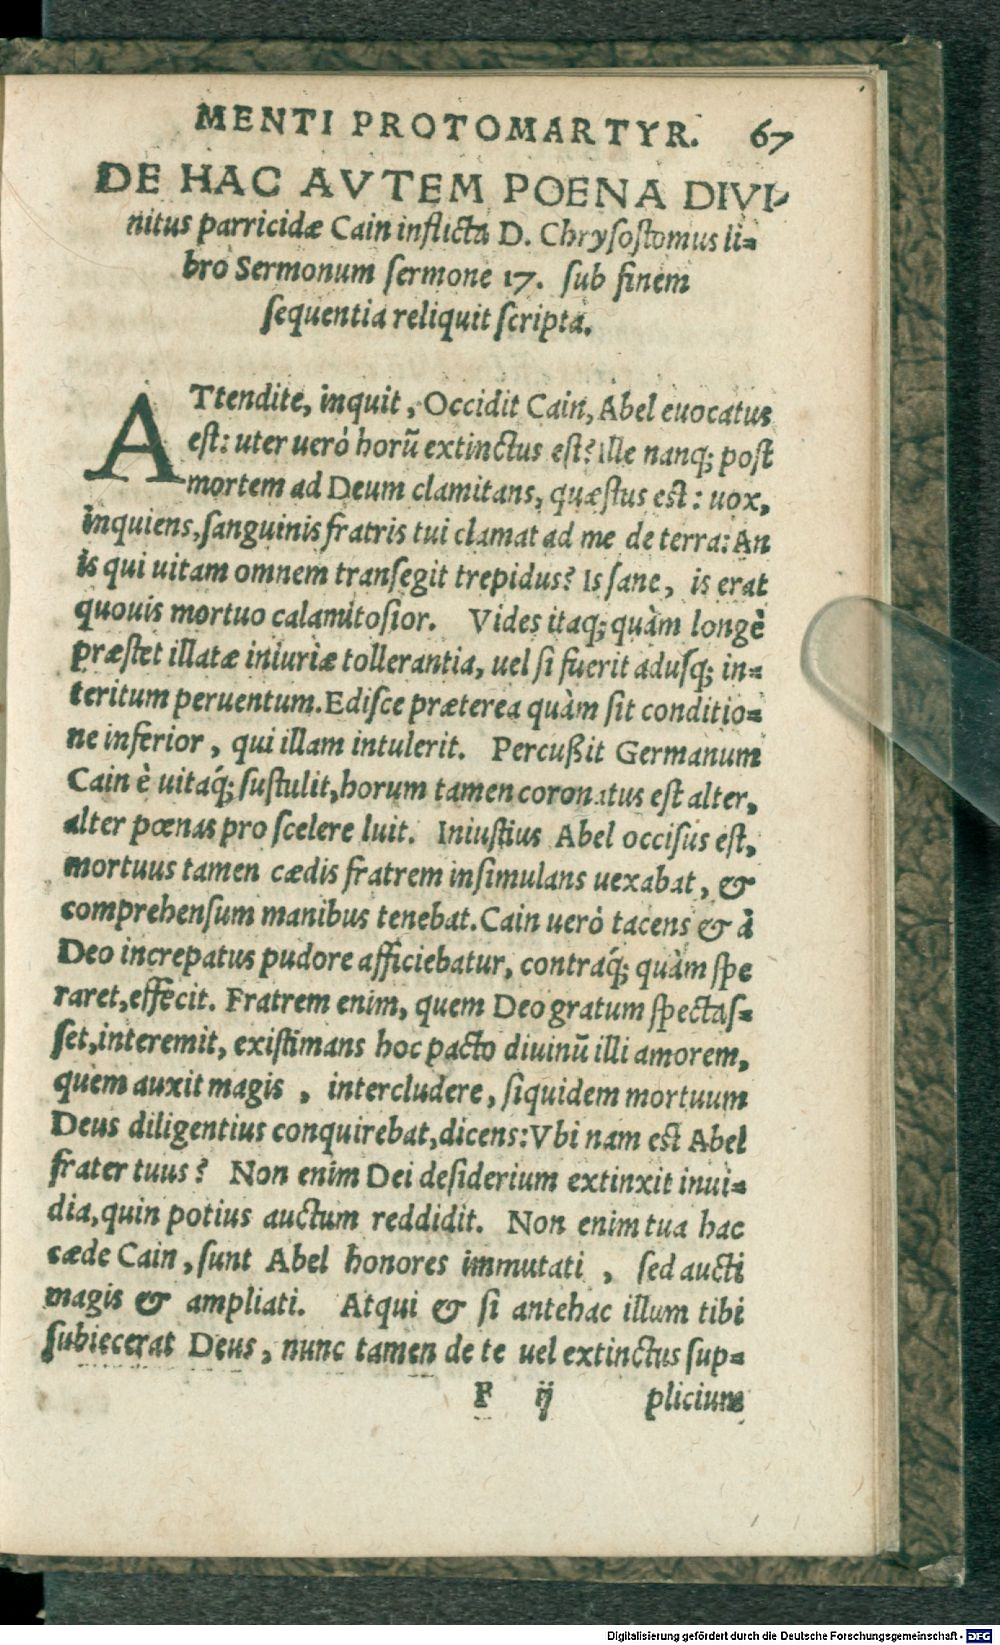 MENTI PROTOMARTYR. 67
DE HAC AVTEM POENA DIVI-
nitus parricidæ Cain inflicta D. Chrysostomus li=
bro Sermonum sermone 17. sub finem
sequentia reliquit scripta.
ATtendite, inquit, Occidit Cain, Abel euocatus
est: uter uerò horū extinctus est? ille nanq; post
mortem ad Deum clamitans, quæstus est: uox,
inquiens, sanguinis fratris tui clamat ad me de terra: An
is qui uitam omnem transegit trepidus? Is sane, is erat
quouis mortuo calamitosior. Vides itaq; quàm longè
præstet illatæ iniuriæ tollerantia, uel si fuerit adusq; in=
teritum peruentum. Edisce præterea quàm sit conditio=
ne inferior, qui illam intulerit. Percußit Germanum
Cain è uitaq́; sustulit, horum tamen coronatus est alter,
alter pœnas pro scelere luit. Iniustius Abel occisus est,
mortuus tamen cædis fratrem insimulans uexabat, &
comprehensum manibus tenebat. Cain uerò tacens & à
Deo increpatus pudore afficiebatur, contraq́; quàm spe
raret, effecit. Fratrem enim, quem Deo gratum spectas=
set, interemit, existimans hoc pacto diuinū illi amorem,
quem auxit magis, intercludere, siquidem mortuum
Deus diligentius conquirebat, dicens: Vbi nam est Abel
frater tuus? Non enim Dei desiderium extinxit inui=
dia, quin potius auctum reddidit. Non enim tua hac
cæde Cain, sunt Abel honores immutati, sed aucti
magis & ampliati. Atqui & si antehac illum tibi
subiecerat Deus, nunc tamen de te uel extinctus sup=
F ij plicium
Digitalisierung gefördert durch die Deutsche Forschungsgemeinschaft - DFG